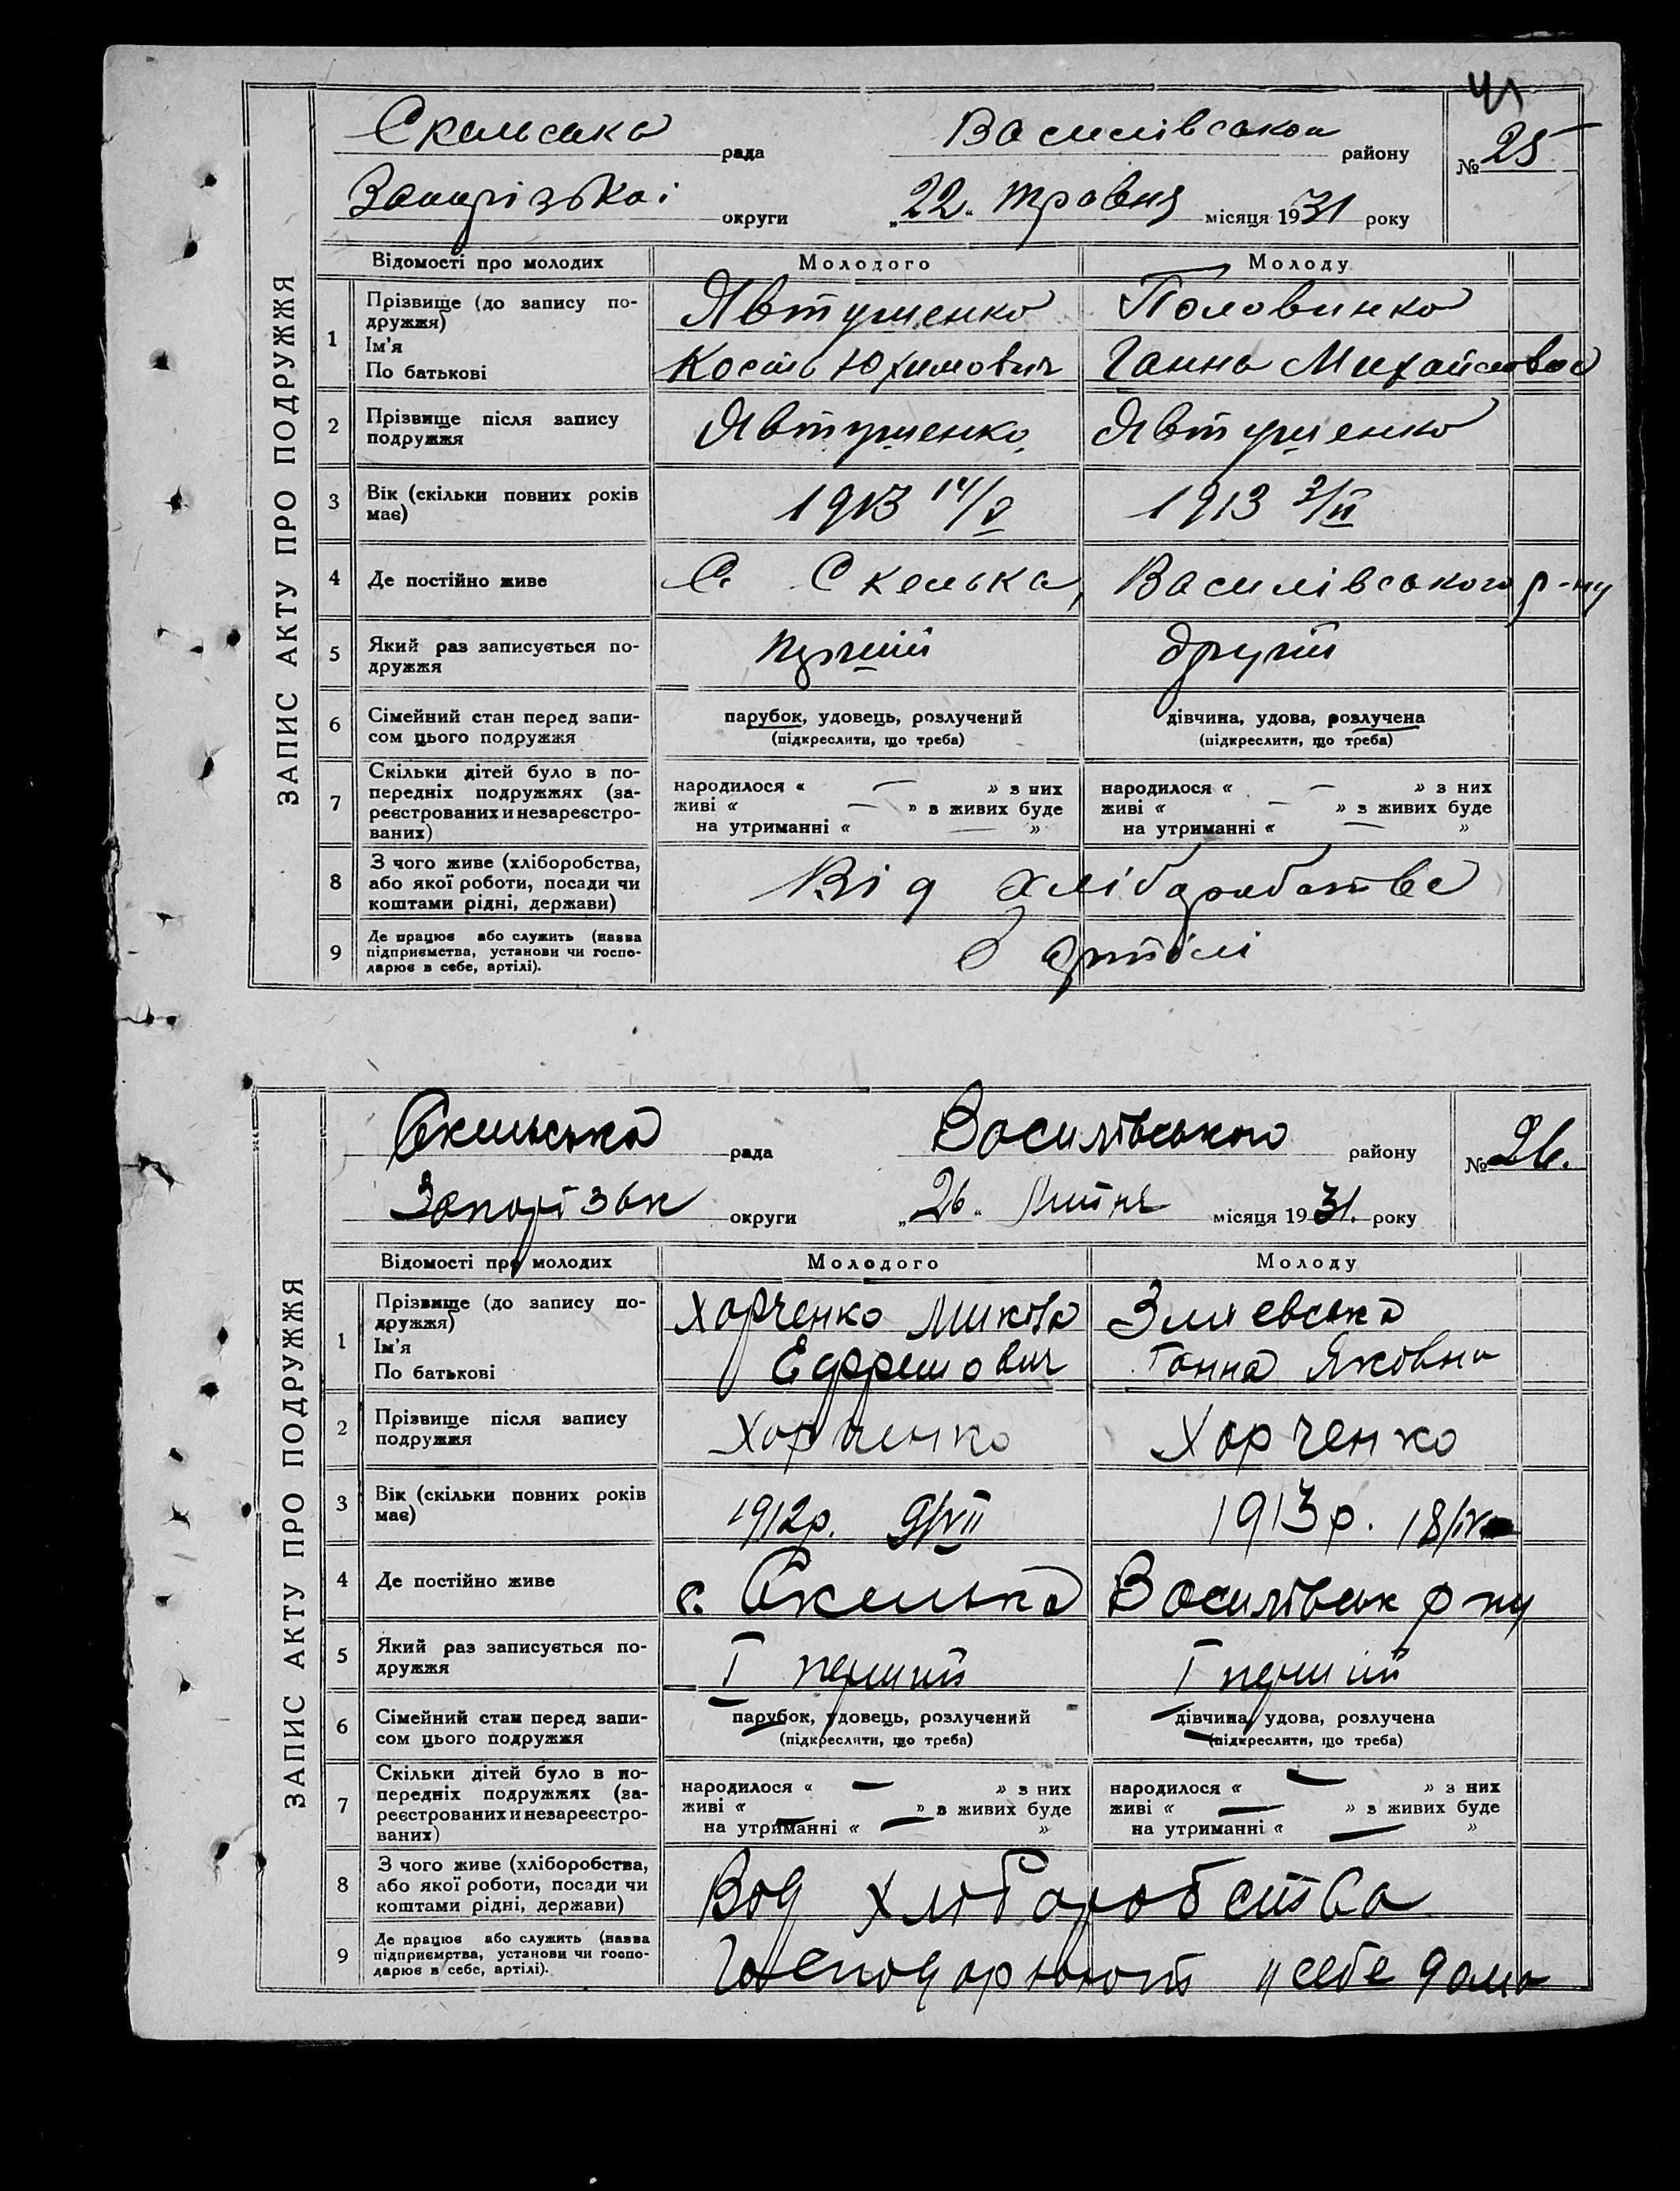 41
Скельська рада Василівської району № 25
Запорізької округи „22“ травня місяця 1931 року
ЗАПИС АКТУ ПРО ПОДРУЖЖЯ
Відомості про молодих Молодого Молоду
1 Прізвище (до запису по-
дружжя) Явтушенко Половинко
Ім'я
По батькові Кость Юхимович Ганна Михайловна
2 Прізвище після запису
подружжя Явтушенко Явтушенко
3 Вік (скільки повних років
має) 1913 14/V 1913 2/II
4 Де постійно живе С. Скелька, Василівського р-ну
5 Який раз записується по-
дружжя перший другий
6 Сімейний стан перед запи-
сом цього подружжя парубок, удовець, розлучений дівчина, удова, розлучена
(підкреслити, що треба) (підкреслити, що треба)
7 Скільки дітей було в по-
передніх подружжях (за-
реєстрованих и незареєстро-
ваних)
народилося « — » з них народилося « — » з них
живі « — » з живих буде живі « — » з живих буде
на утриманні « — » на утриманні « — »
8 З чого живе (хліборобства,
або якої роботи, посади чи
коштами рідні, держави) Від хліборобства
9 Де працює або служить (назва
підприємства, установи чи госпо-
дарює в себе, артілі). В артілі
Скельська рада Василівського району № 26.
Запорізьк округи „26“ липня місяця 1931. року
ЗАПИС АКТУ ПРО ПОДРУЖЖЯ
Відомості про молодих Молодого Молоду
1 Прізвище (до запису по-
дружжя) Харченко Микола Змиевська
Ім'я
По батькові Ефремович Ганна Яковна
2 Прізвище після запису
подружжя Харченко Харченко
3 Вік (скільки повних років
має) 1912р. 9/VII 1913р. 18/IV
4 Де постійно живе с. Скелька Василівськ р ну
5 Який раз записується по-
дружжя I перший I перший
6 Сімейний стан перед запи-
сом цього подружжя парубок, удовець, розлучений дівчина, удова, розлучена
(підкреслити, що треба) (підкреслити, що треба)
7 Скільки дітей було в по-
передніх подружжях (за-
реєстрованих и незареєстро-
ваних)
народилося « — » з них народилося « — » з них
живі « — » з живих буде живі « — » з живих буде
на утриманні « — » на утриманні « — »
8 З чого живе (хліборобства,
або якої роботи, посади чи
коштами рідні, держави) Вод хліборобства
9 Де працює або служить (назва
підприємства, установи чи госпо-
дарює в себе, артілі). Господарюють у себе дома